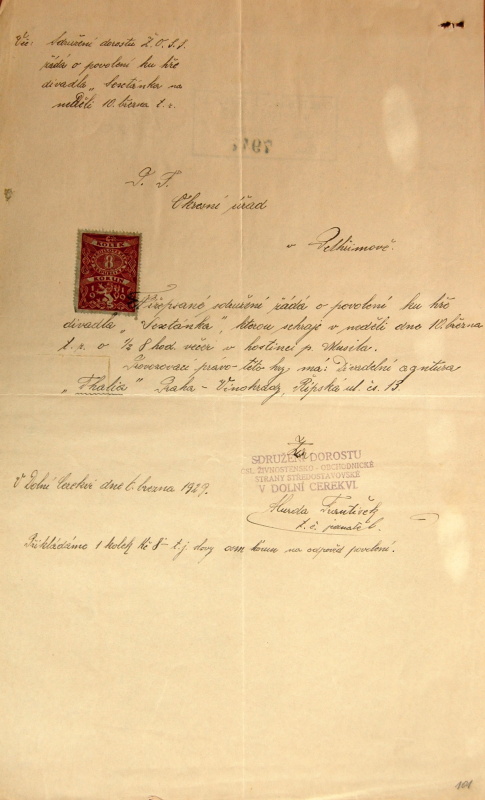 Věc: Sdružení dorostu Ž.O.S.S.
žádá o povolení ku hře
divadla „Sextánka na
neděli 10. března t. r.
794
P. T.
Okresní úřad
v Pelhřimově.
KOLEK
8
KORUN
Nížepsané sdružení žádá o povolení ku hře
divadla „Sextánka", kterou sehraje v neděli dne 10. března
t. r. o ½ 8 hod. večer v hostinci p. Musila.
Provozovací právo této hry má: Divadelní agentura
„Thalia" Praha - Vinohrady, Řípská ul. čs. 13.
Za
SDRUŽENÍ DOROSTU
ŽIVNOSTENSKO - OBCHODNICKÉ
STRANY STŘEDOSTAVOVSKÉ
V DOLNÍ CEREKVI
V Dolní Cerekvi dne 6. března 1929.
František
t. č.
Přikládáme 1 kolek Kč 8- t. j. slovy osm korun na odpověď povolení.
101